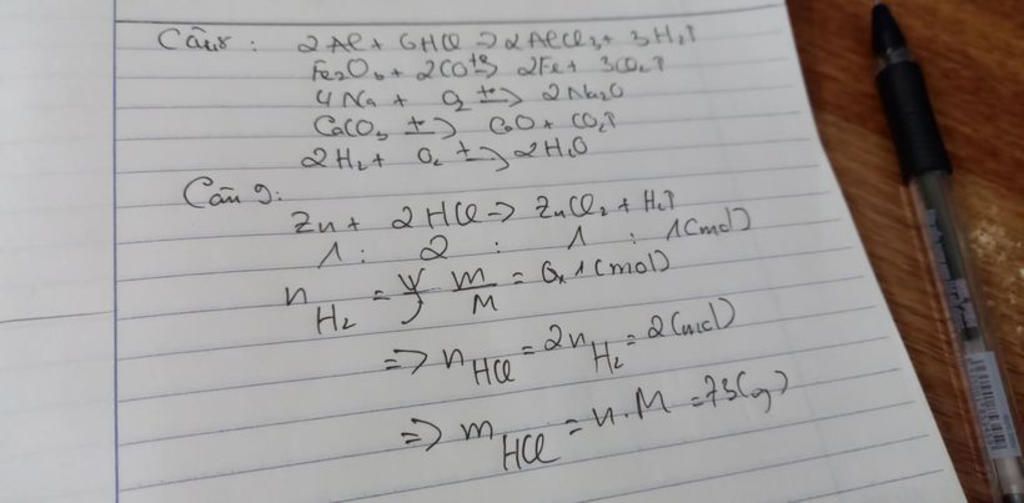 Câu 8 : 2Al + 6HCl → 2AlCl₃ + 3H₂↑
Fe₂O₃ + 2CO t° → 2Fe + 3CO₂↑
4Na + O₂ t° → 2Na₂O
CaCO₃ t° → CaO + CO₂↑
2H₂ + O₂ t° → 2H₂O
Câu 9:
Zn + 2HCl → ZnCl₂ + H₂↑
1 : 2 : 1 : 1 (mol)
n H₂ = m/M = 1 (mol)
=> n HCl = 2n H₂ = 2 (mol)
=> m HCl = n.M = 73 (g)